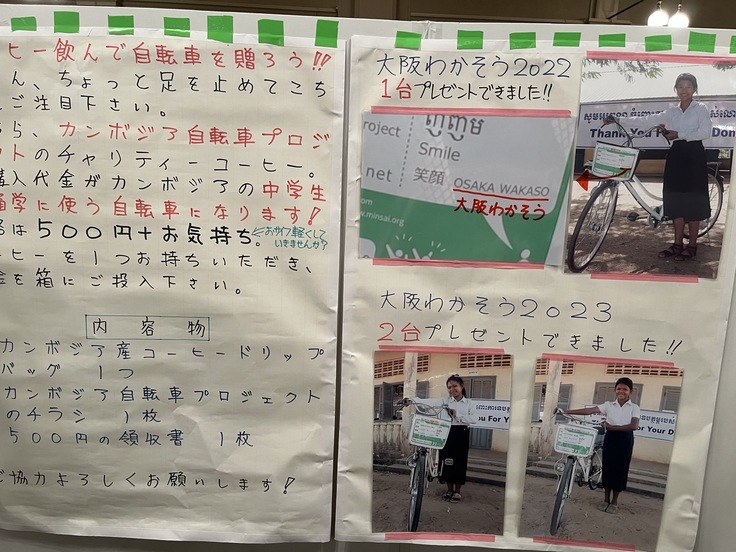 ヒー飲んで自転車を贈ろう!!
ん、ちょっと足を止めてこち
ご注目下さい。
ら、カンボジア自転車プロジ
クトのチャリティーコーヒー。
購入代金がカンボジアの中学生
通学に使う自転車になります!
は500円+お気持ち。
←おサイフ軽くして
いきませんか?
ーヒーを1つお持ちいただき、
金を箱にご投入下さい。
内容物
カンボジア産コーヒードリップ
バッグ 1つ
カンボジア自転車プロジェクト
のチラシ 1枚
500円の領収書 1枚
ご協力よろしくお願いします!
大阪わかそう2022
1台プレゼントできました!!
roject
ញញឹម
Smile
笑顔
net
OSAKA WAKASO
大阪わかそう
com
www.minsai.org
Thank You
Don
大阪わかそう2023
2台プレゼントできました!!
ou For Y
or Your D